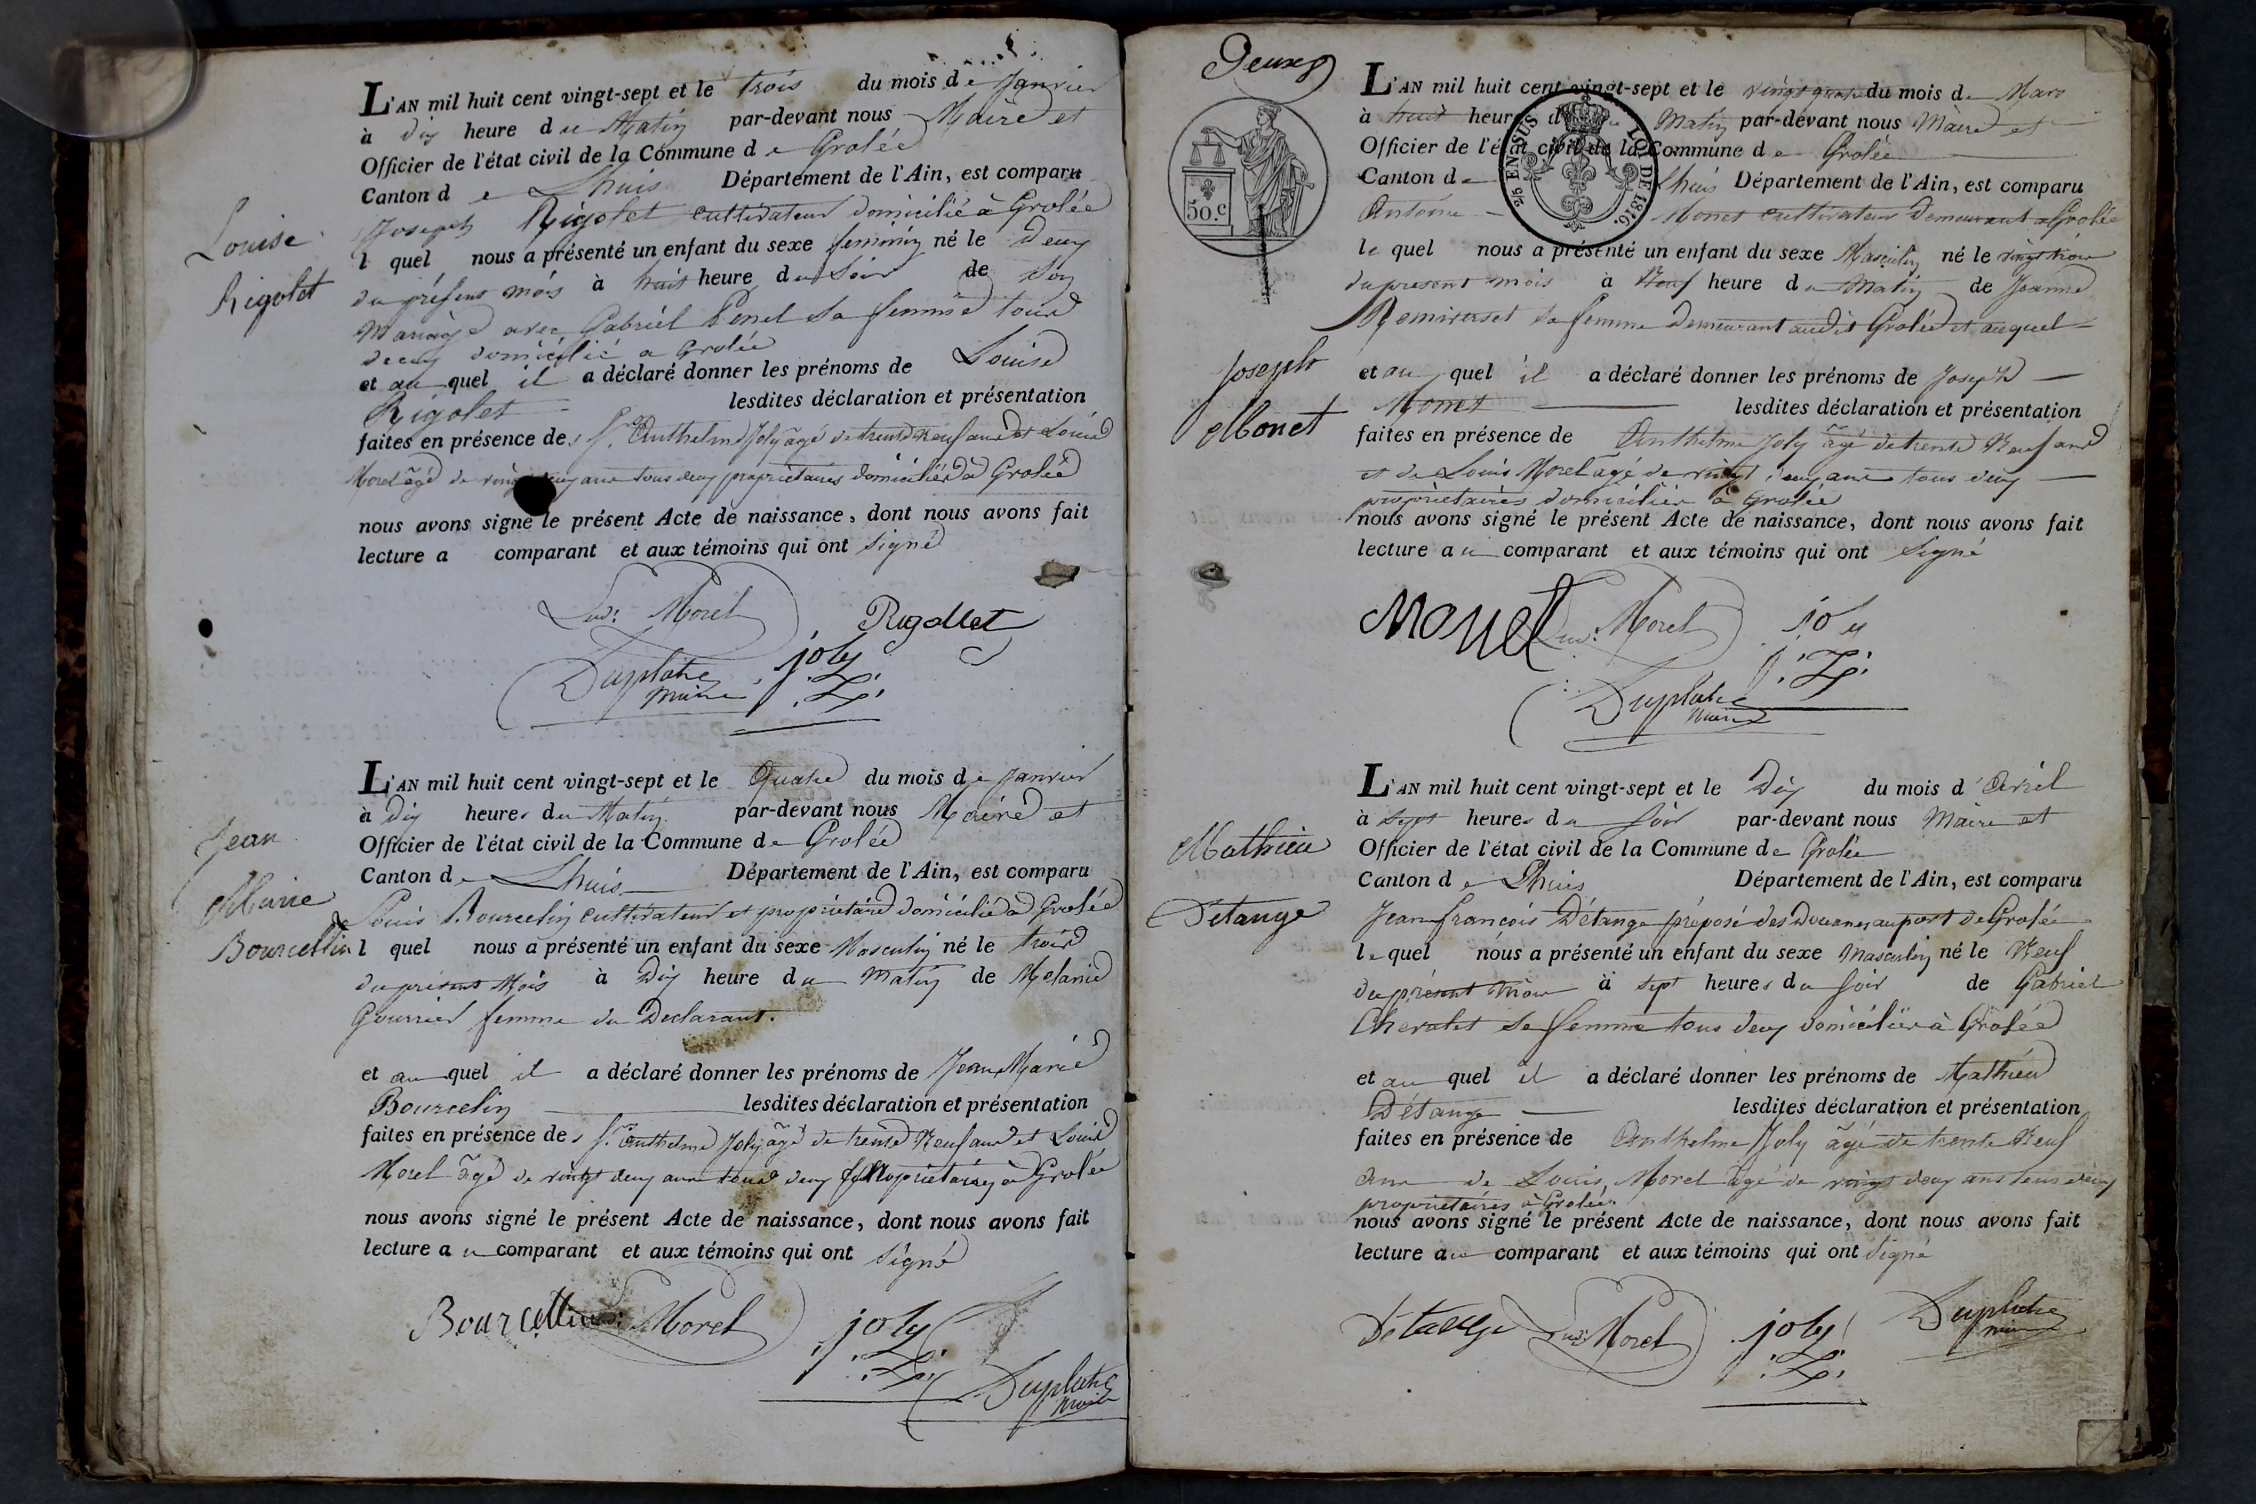 L'AN mil huit cent vingt-sept et le trois du mois de Janvier
à dix heure du Matin par-devant nous Maire et
Officier de l'état civil de la Commune de Grolée
Canton de Lhuis Département de l'Ain, est comparu
Joseph Rigolet cultivateur domicilié à Grolée
Louise
l quel nous a présenté un enfant du sexe feminin né le deux
Rigolet
du présent mois à huit heure du Soir de son
Mariage avec Gabriel Penel sa femme tous
deux domicilié a Grolée
et au quel il a déclaré donner les prénoms de Louise
Rigolet lesdites déclaration et présentation
faites en présence de Anthelme Joly âgé de trente neuf ans et Louis
Morel âgé de deux ans tous deux propriétaires domiciliés à Grolée
nous avons signé le présent Acte de naissance, dont nous avons fait
lecture a comparant et aux témoins qui ont signé
Lud: Morel Rigollet
Duplatre joly
Maire
L'AN mil huit cent vingt-sept et le Quatre du mois de Janvier
à Dix heures du Matin par-devant nous Maire et
Jean
Officier de l'état civil de la Commune de Grolée
Canton de Lhuis Département de l'Ain, est comparu
Marie
Louis Bourcelin cultivateur et propriétaire domicilié à Grolée
Bourcellin
l quel nous a présenté un enfant du sexe Masculin né le trois
du présent Mois à Dix heure du Matin de Melanie
Gourrier femme du Declarant.
et au quel il a déclaré donner les prénoms de Jean Marie
Bourcelin lesdites déclaration et présentation
faites en présence de Anthelme Joly âgé de trente neuf ans et Louis
Morel âgé de vingt deux ans tous deux propriétaires à Grolée
nous avons signé le présent Acte de naissance, dont nous avons fait
lecture au comparant et aux témoins qui ont signé
Bourcellin Lud: Morel joly
Duplatre
Maire
Deux
L'AN mil huit cent vingt-sept et le vingt quatre du mois de Mars
à huit heure du Matin par-devant nous Maire et
Officier de l'état civil de la Commune de Grolée
Canton de Lhuis Département de l'Ain, est comparu
50.c
EN SUS LOI DE 1816.
Antoine Monet cultivateur demeurant a Grolée
le quel nous a présenté un enfant du sexe Masculin né le vingt trois
du present mois à Neuf heure du Matin de Jeanne
sa femme demeurant audit Grolée et auquel
Joseph
et au quel il a déclaré donner les prénoms de Joseph
Monet
Monet lesdites déclaration et présentation
faites en présence de Anthelme Joly âgé de trente Neuf ans
et de Louis Morel âgé de vingt deux ans tous deux
propriétaires domiciliés à Grolée
nous avons signé le présent Acte de naissance, dont nous avons fait
lecture au comparant et aux témoins qui ont signé
Monet Lud: Morel joly
Duplatre
Maire
L'AN mil huit cent vingt-sept et le Dix du mois d'Avril
à sept heures du soir par-devant nous Maire et
Mathieu
Officier de l'état civil de la Commune de Grolée
Canton de Lhuis Département de l'Ain, est comparu
Détange
Jean françois Détange préposé des Douanes au port de Grolée
le quel nous a présenté un enfant du sexe Masculin né le Neuf
du présent mois à sept heures du soir de Gabriel
Chevalet sa femme tous deux domiciliés à Grolée
et au quel il a déclaré donner les prénoms de Mathieu
Détange lesdites déclaration et présentation
faites en présence de Anthelme Joly âgé de trente Neuf
ans de Louis Morel âgé de vingt deux ans tous deux
propriétaires à Grolée
nous avons signé le présent Acte de naissance, dont nous avons fait
lecture au comparant et aux témoins qui ont signé
Détange Lud: Morel joly Duplatre
Maire